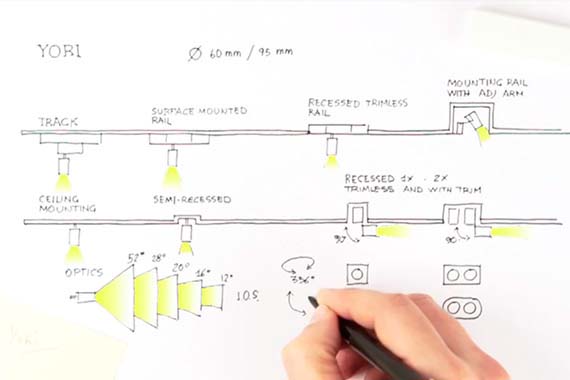 YORI
Ø 60mm / 95 mm
TRACK
SURFACE MOUNTED
RAIL
RECESSED TRIMLESS
RAIL
MOUNTING RAIL
WITH ADJ ARM
CEILING
MOUNTING
SEMI-RECESSED
RECESSED 1x - 2x
TRIMLESS AND WITH TRIM
90°
90°
OPTICS
52° 28° 20° 16° 12°
I.O.S.